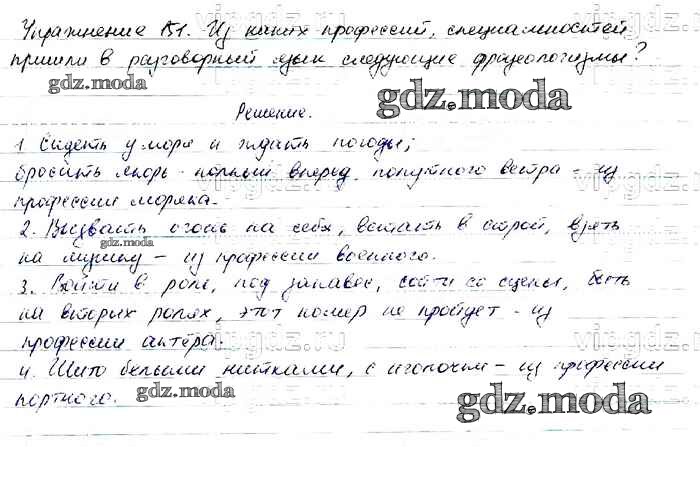 Упражнение 151. Из каких профессий, специальностей
пришли в разговорный язык следующие фразеологизмы?
gdz.moda
gdz.moda
Решение.
1. Сидеть у моря и ждать погоды;
бросить якорь - полный вперед, попутного ветра - из
vipgdz.ru
профессии моряка.
2. Вызвать огонь на себя, встать в строй, взять
gdz.moda
на мушку - из профессии военного.
gdz.moda
3. Войти в роль, под занавес, сойти со сцены, быть
на вторых ролях, этот номер не пройдет - из
vipgdz.ru
vipgdz.ru
профессии актёра.
4. Шито белыми нитками, с иголочки - из профессии
портного.
gdz.moda
gdz.moda